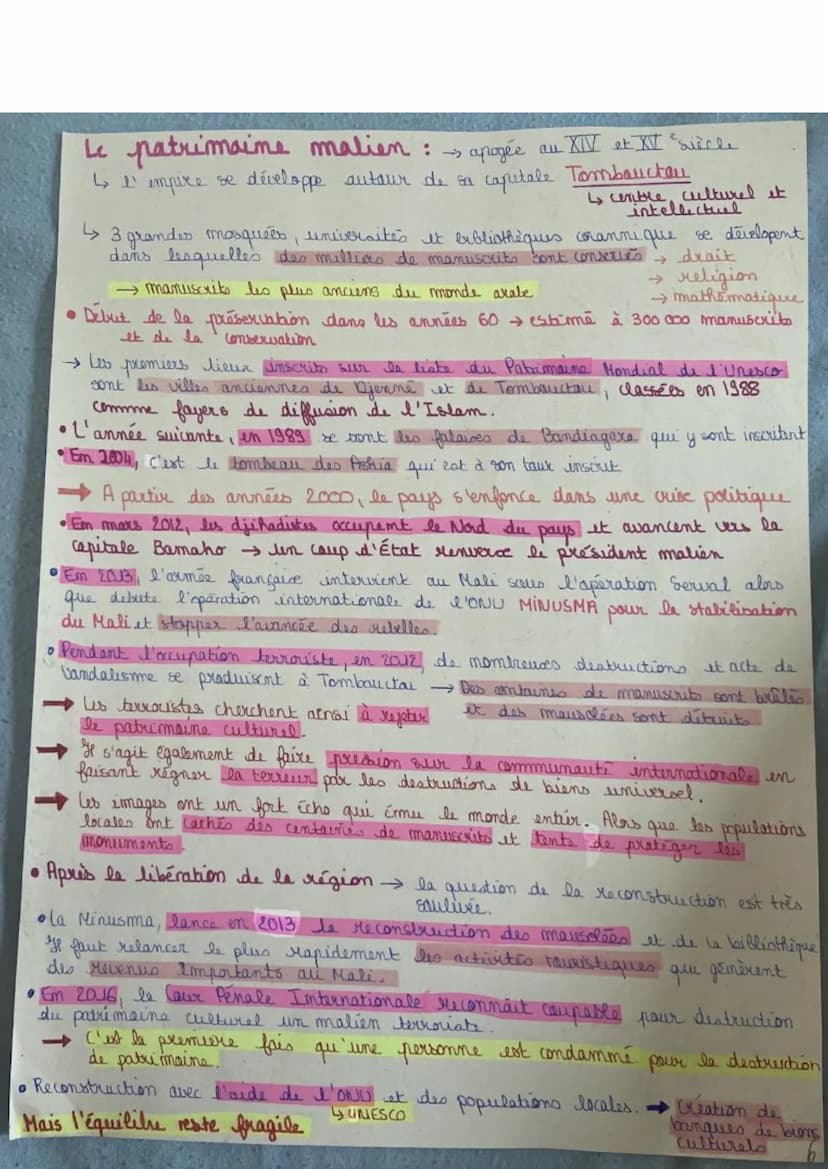 Le patrimoine malien : → apogée au XIV et XV e siècle
↳ l'empire se développe autour de sa capitale Tombouctou
↳ centre culturel et
intellectuel
↳ 3 grandes mosquées, universités et bibliothèques corannique se dévelopent
dans lesquelles des milliers de manuscrits sont conservés → droit
→ religion
→ manuscrits les plus anciens du monde arabe
→ mathématique
• Début de la préservation dans les années 60 → estimé à 300 000 manuscrits
et de la conservation
→ Les premiers lieux inscrits sur la liste du Patrimoine Mondial de l'Unesco
sont les villes anciennes de Djenné et de Tombouctou, classées en 1988
comme foyers de diffusion de l'Islam.
• L'année suivante, en 1989 se sont les falaises de Bandiagara qui y sont inscritent
• En 2004, c'est le tombeau des Askia qui est à son tour inscrit
→ A partir des années 2000, le pays s'enfonce dans une crise politique
• En mars 2012, les djihadistes occupent le Nord du pays et avancent vers la
capitale Bamako → un coup d'État renverse le président malien
• En 2013, l'armée française intervient au Mali sous l'opération Serval alors
que debute l'opération internationale de l'ONU MINUSMA pour la stabilisation
du Mali et stopper l'avancée des rebelles.
• Pendant l'occupation terroriste, en 2012, de nombreuses destructions et acte de
vandalisme se produisent à Tombouctou → Des centaines de manuscrits sont brûlés
et des mausolées sont détruits
→ Les terroristes cherchent ainsi à rejeter
le patrimoine culturel.
→ Il s'agit également de faire pression sur la communauté internationale en
faisant régner la terreur par les destructions de biens universel.
→ Les images ont un fort écho qui émue le monde entier. Alors que les populations
locales ont cachés des centaines de manuscrits et tente de protéger les
monuments.
• Après la libération de la région → la question de la reconstruction est très
soulevée.
• La Minusma, lance en 2013 la reconstruction des mausolées et de la bibliothèque
Il faut relancer le plus rapidement les activités touristiques qui génèrent
des revenus importants au Mali.
• En 2016, la Cour Pénale Internationale reconnait coupable pour destruction
du patrimoine culturel un malien terroriste.
→ C'est la première fois qu'une personne est condammé pour la destruction
de patrimoine.
• Reconstruction avec l'aide de l'ONU et des populations locales. → Création de
banques de biens
culturels
↳ UNESCO
Mais l'équilibre reste fragile
6